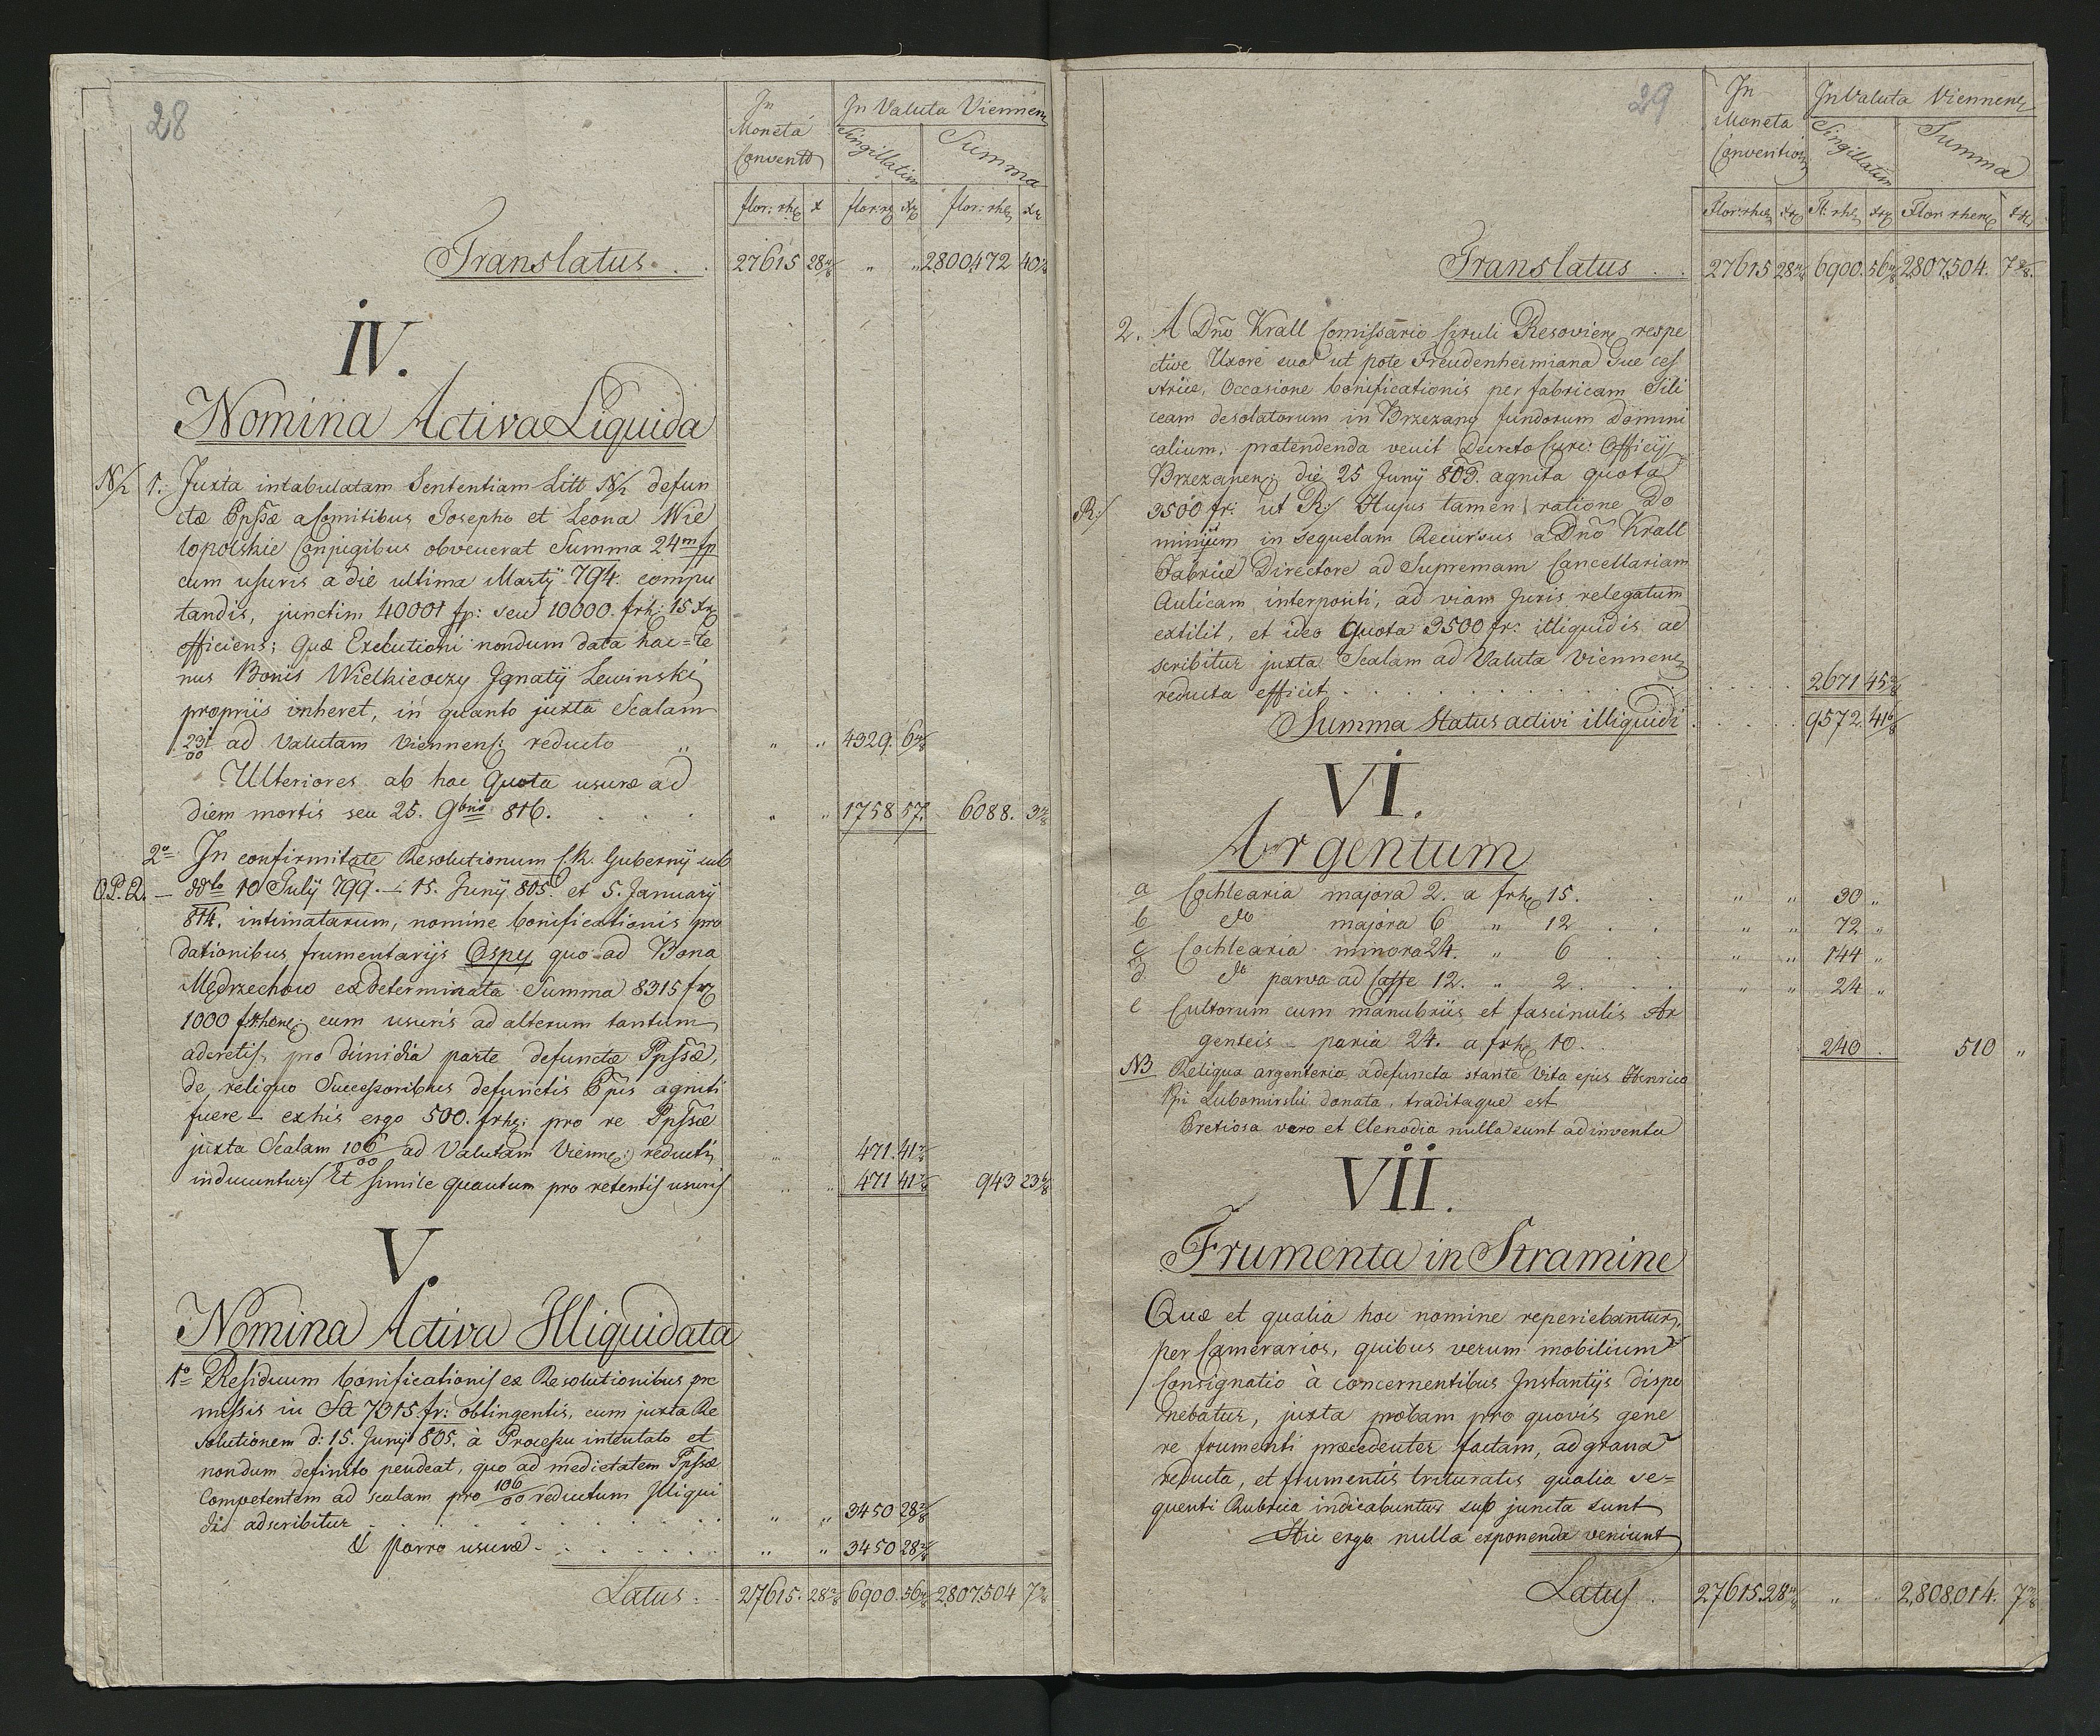 28
In Moneta Conventˢ
In Valuta Viennen
Singillatim
Summa
flor: rhe x
flor: re xr
flor: rhe xr
Translatus . . 27615 28 4/8 " " 2800472 40
IV.
Nomina Activa Liquida
N/2 1. Juxta intabulatam Sententiam Litt N/2 defun
ctæ Ppssæ a Comitibus Josepho et Leona Wie
lopolskie Conjugibus obvenerat Summa 24m fp
cum usuris a die ultima Martÿ 794. compu
tandis, junctim 40001 fp: seu 10000. frh: 15 xr
officiens; Quæ Executioni nondum data hac=te
nus Bonis Wielkieoczy Ignatÿ Lewinski
propriis inheret, in quanto juxta Scalam
231/00 ad Valutam Viennens: reducto " " " 4329. 6 4/8
Ulteriores ab hac Quota usuræ ad
diem mortis seu 25. 9bris 816. . . . " " 1758 57. 6088. 3 4/8
2o In confirmitate Resolutionum C.R. Gubernÿ sub
O.P.Q. — ddto 10 Julÿ 799. – 15. Junÿ 805. et 5. January
814. intimatarum, nomine bonificationis pro
dationibus frumentarÿs Ospy quo ad Bona
Mędrzechow ex determinata Summa 8315 fr
1000 frhene; cum usuris ad alterum tantum
adcretis, pro dimidia parte defunctæ Ppssæ,
de reliquo Successoribus defunctis Ppis agniti
fuere – ex his ergo 500. frhe: pro re Ppssæ
juxta Scalam 106/00 ad Valutam Vienne: reducti " 471. 41 2/8
inducuntur: Et simile quantum pro retentis usuris " " 471 41 2/8 943 23 6/8
V.
Nomina Activa Illiquidata
1o Residuum bonificationis ex Resolutionibus pre
missis in Sa 7315 fr: obtingentis, cum juxta Re
solutionem d: 15. Junÿ 805. à Processu intentato et
nondum definito pendeat, quo ad medietatem Ppssæ
Competentem ad scalam pro 106/00 reductum Illiqui
dis adscribitur . . . . . " " 3450 28 2/8
Et porro usuræ . . . . . . " " 3450 28 2/8
Latus . 27615. 28 4/8 6900. 56 4/8 2807504 7 2/8
29
In Moneta Convention
In Valuta Viennene
Singillatim
Summa
Flor: rhe xr
fl: rhe xr
Flor rhene xr
Translatus . . 27615 28 4/8 6900. 56 4/8 2807504. 7 2/8.
2. A Dño Krall Comissario Circuli Resovien respe
ctive Uxore sua ut pote Freudenheimiana Jue ces
strice, Occasione bonificationis per fabricam Sili
ceam desolatorum in Brzezany fundorum domini
calium, prætendenda venit Decreto Circ: Officÿ
Brzezanen; die 25 Junÿ 803. agnita quota
R:/ 3500 fr: ut R:/ Hujus tamen ratione Do
miniÿm in sequelam Recursus a Dño Krall
Fabricæ Directore ad Supremam Cancellariam
Aulicam interpositi, ad viam Juris relegatum
extilit, et ideo Quota 3500 fr: illiquidis ad
scribitur juxta Scalam ad Valuta Viennene
reducta efficit . . . . . . 2671 45 2/8
Summa Status activi illiquidi . . . . 9572. 41 6/8
VI.
Argentum
a Cochlearia majora 2. a frhe 15. . . " " 30 "
b dto majora 6 " 12 . . " " 72 "
c Cochlearia minora 24. " 6 . . " " 144 "
d dto parva ad Caffe 12. " 2. . . " " 24 "
e Cultorum cum manubriis et fascinulis Ar
genteis – paria 24. a frhe 10. . . 240 . 510 "
NB Reliqua argenteria, a defuncta stante Vita ejus Henrico
Ppi Lubomirski donata, traditaque est
Pretiosa vero et Clenodia nulla sunt adinventa
VII.
Frumenta in Stramine
Quæ et qualia hoc nomine reperiebantur,
per Camerarios, quibus verum mobilium
Consignatio à concernentibus Instantÿs dispo
nebatur, juxta probam pro quovis gene
re frumenti præcedenter factam, ad grana
reducta, et frumentis trituratis qualia se=
quenti Rubrica indicabuntur sub juncta sunt
Hic ergo nulla exponenda veniunt
Latus . 27615. 28 4/8 " " 2,808,014. 7 2/8